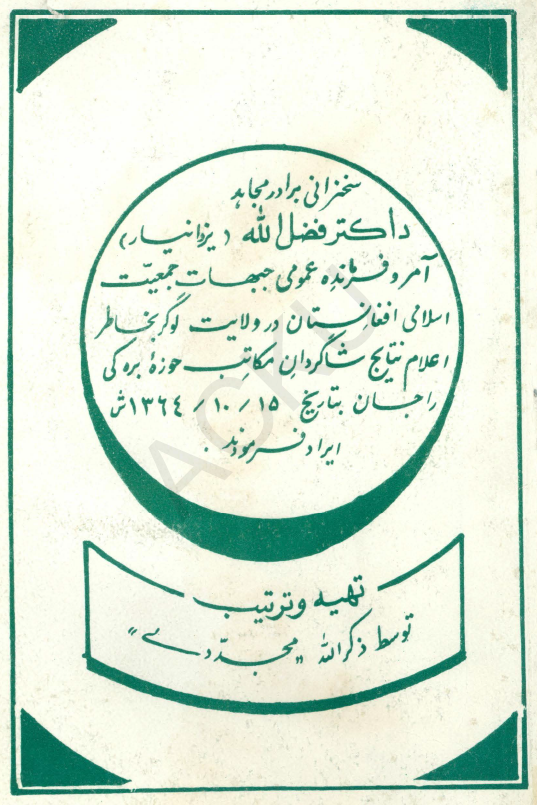 سخنرانی برادر مجاهد
داکتر فضل الله (یزدانیار)
آمر و فرمانده عمومی جبهات جمعیّت
اسلامی افغانستان در ولایت لوگر بخاطر
اعلام نتایج شاگردان مکاتب حوزهٔ برکی
راجان بتاریخ ۱۵ / ۱۰ / ۱۳۶۴ش
ایراد فرمودند.
تهیه و ترتیب
توسط ذکرالله "مجدّدی"
ACKU